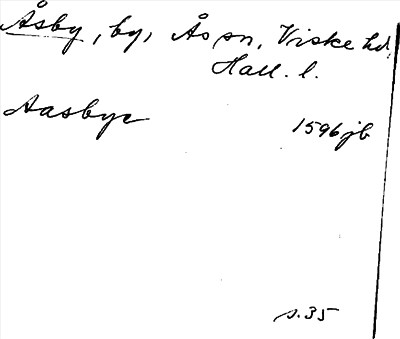 Åsby, by, Ås sn, Viske hd,
Hall. l.
Aasbye 1596 jb
s. 35